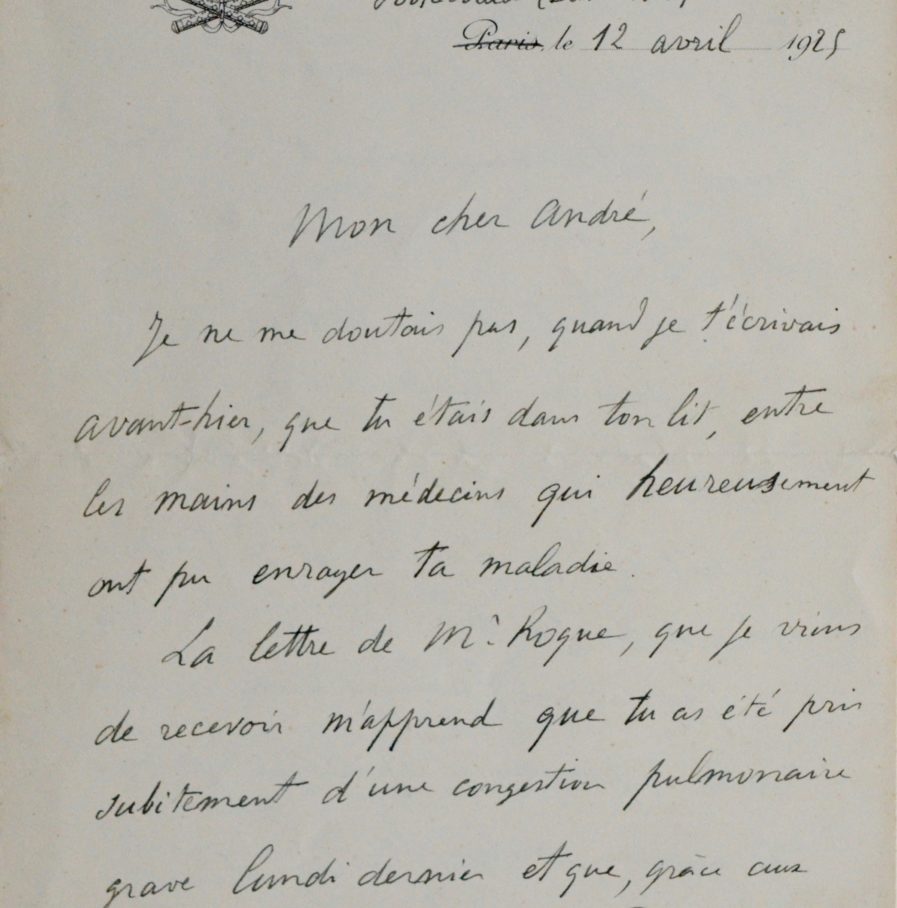 ~~Paris~~, le 12 avril 1925
Mon cher André,
Je ne me doutais pas, quand je t'écrivais
avant-hier, que tu étais dans ton lit, entre
les mains des médecins qui heureusement
ont pu enrayer ta maladie.
La lettre de Mr. Roque, que je viens
de recevoir m'apprend que tu as été pris
subitement d'une congestion pulmonaire
grave lundi dernier et que, grâce aux